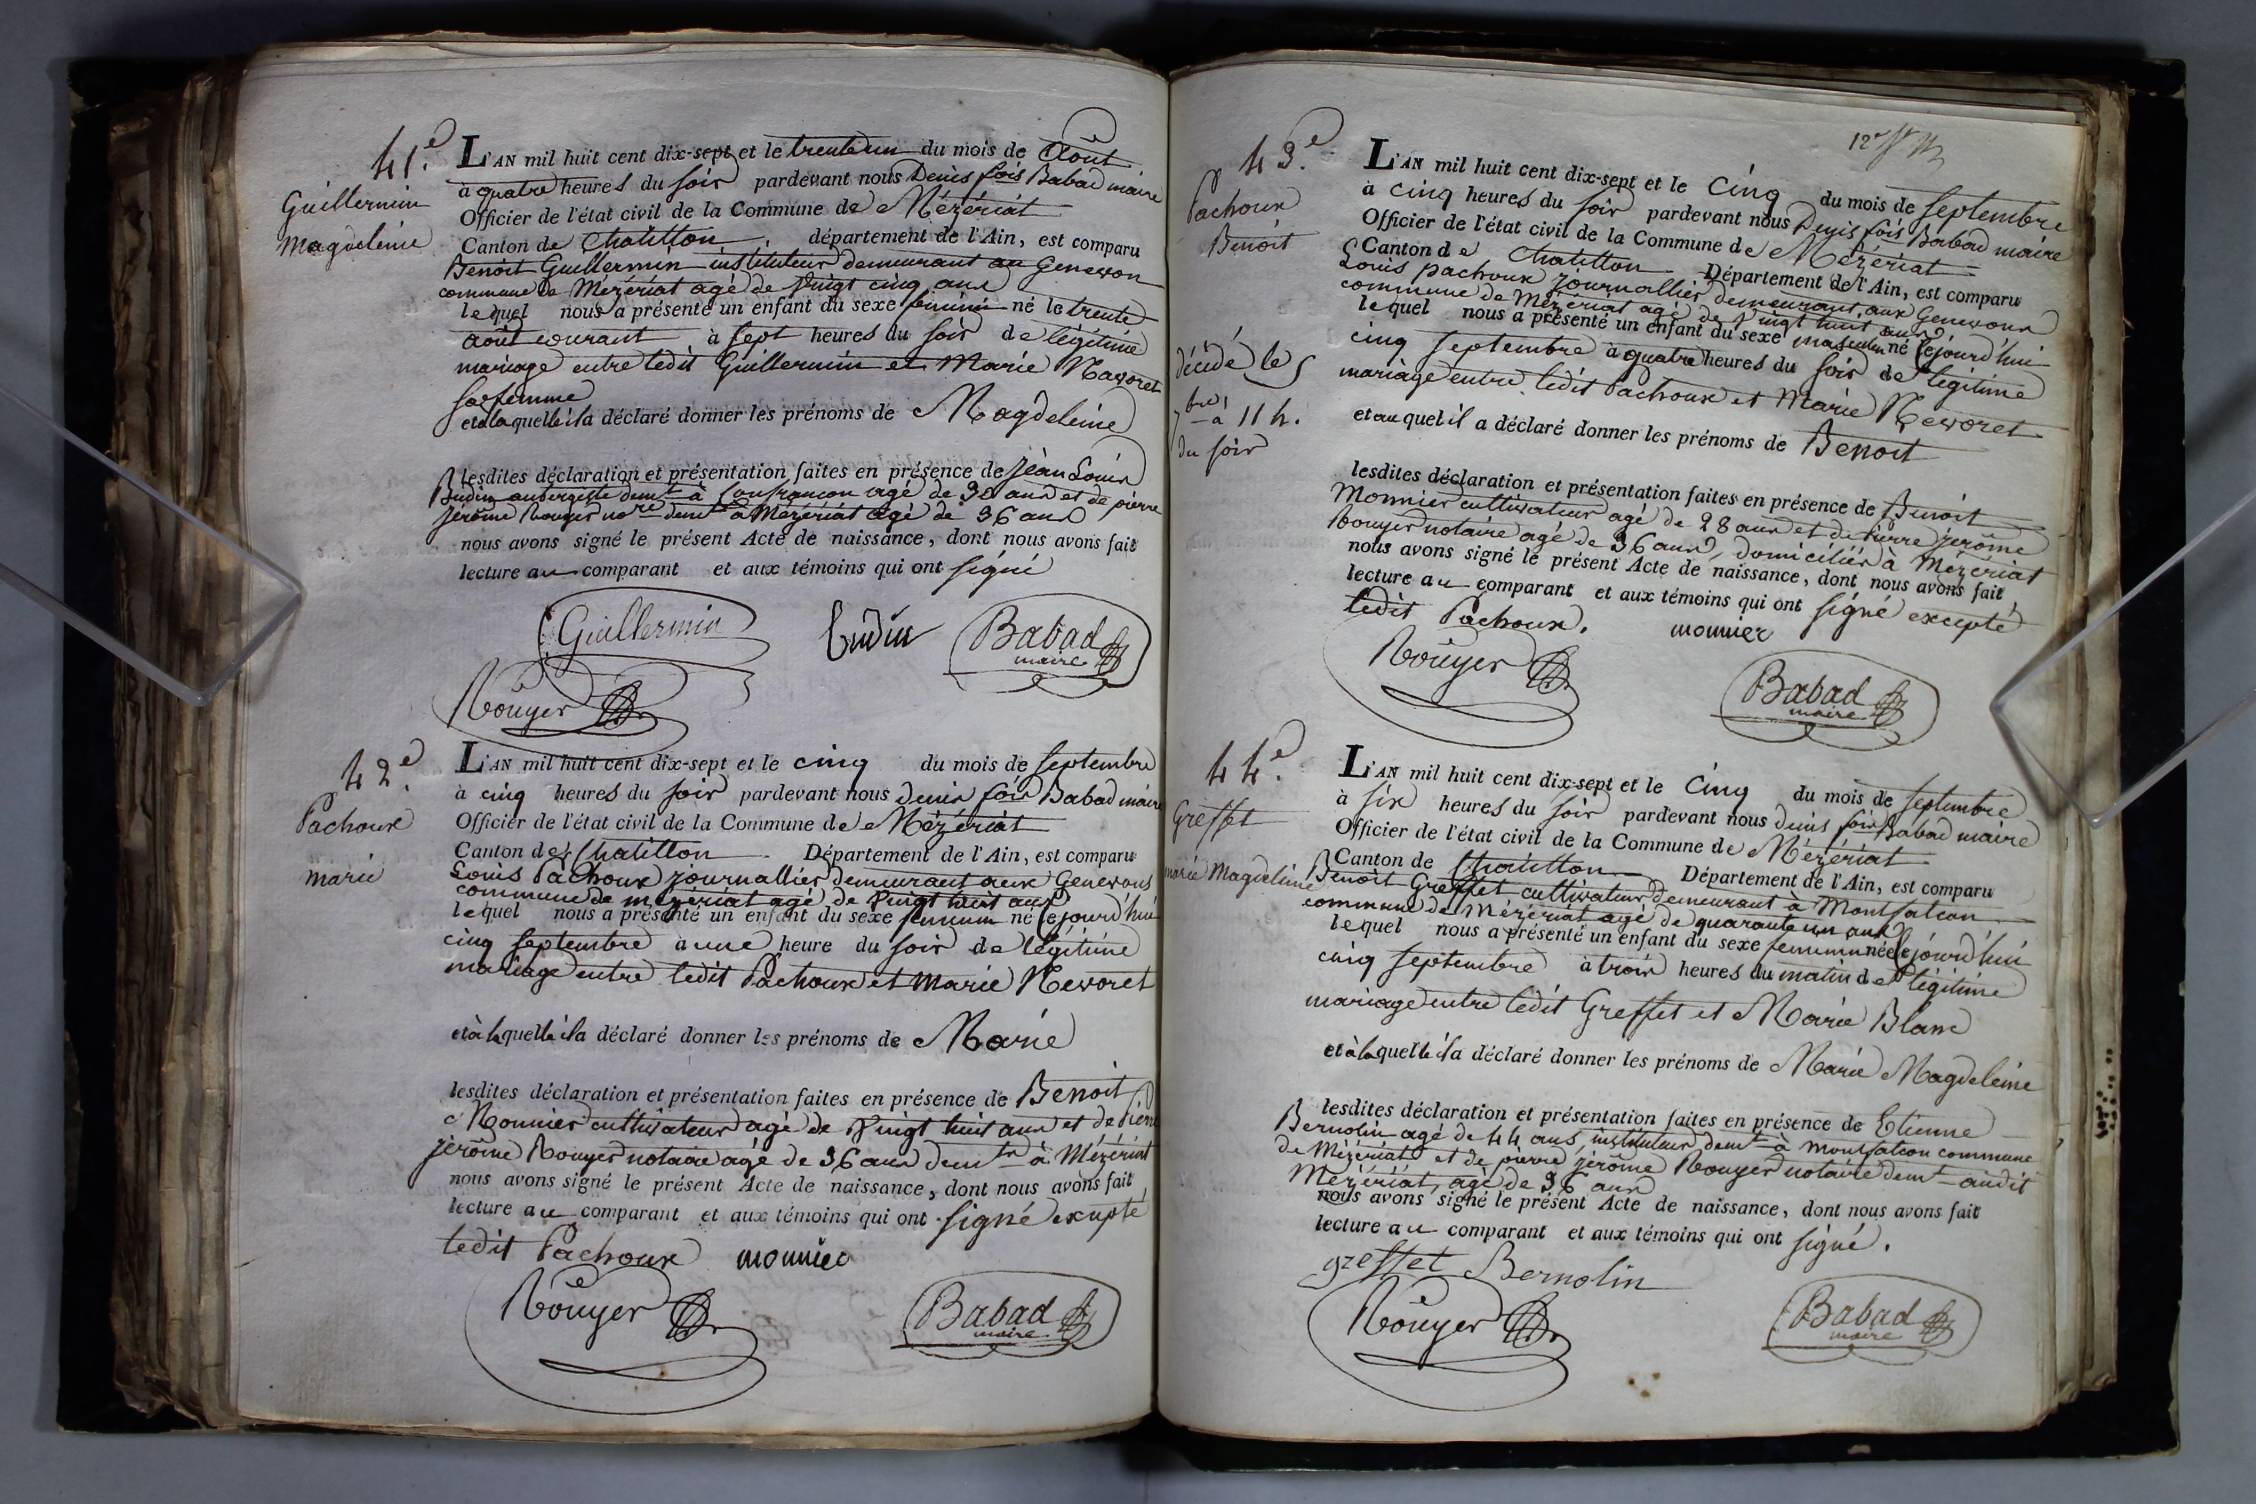 41.e
Guillermin
Magdeleine
L'AN mil huit cent dix-sept et le trente un du mois de Août
à quatre heures du soir pardevant nous Denis fois Babad maire
Officier de l'état civil de la Commune de Mézériat
Canton de Chatillon département de l'Ain, est comparu
Benoit Guillermin instituteur demeurant au Genevon
commune de Mézériat agé de vingt cinq ans
lequel nous a présenté un enfant du sexe feminin né le trente
août courant à sept heures du soir de légitime
mariage entre ledit Guillermin et Marie Navoret
sa femme
et à laquelle il a déclaré donner les prénoms de Magdeleine
lesdites déclaration et présentation faites en présence de Jean Louis
Budin aubergiste demt à Confrançon agé de 30 ans et de pierre
Jérôme Rouyer nore demt à Mézériat agé de 36 ans
nous avons signé le présent Acte de naissance, dont nous avons fait
lecture au comparant et aux témoins qui ont signé
Guillermin Budin Babad
maire
Rouyer
42.e
Pachoux
Marie
L'AN mil huit cent dix-sept et le cinq du mois de septembre
à cinq heures du soir pardevant nous denis fois Babad maire
Officier de l'état civil de la Commune de Mézériat
Canton de Chatillon Département de l'Ain, est comparu
Louis Pachoux journallier demeurant aux Genevons
commune de mézériat agé de vingt huit ans
lequel nous a présenté un enfant du sexe feminin né cejourd'hui
cinq septembre à une heure du soir de légitime
mariage entre ledit Pachoux et Marie Nevoret
et à laquelle il a déclaré donner les prénoms de Marie
lesdites déclaration et présentation faites en présence de Benoit
Monnier cultivateur agé de vingt huit ans et de Pierre
jérôme Rouyer notaire agé de 36 ans demt à Mézériat
nous avons signé le présent Acte de naissance, dont nous avons fait
lecture au comparant et aux témoins qui ont signé excepté
ledit Pachoux monnier
Rouyer Babad
maire
12e
43.e
Pachoux
Benoit
décédé le 5
7bre à 11 h.
du soir
L'AN mil huit cent dix-sept et le cinq du mois de septembre
à cinq heures du soir pardevant nous Denis fois Babad maire
Officier de l'état civil de la Commune de Mézériat
Canton de Chatillon Département de l'Ain, est comparu
Louis pachoux journallier demeurant aux Genevons
commune de Mézériat agé de vingt huit ans
lequel nous a présenté un enfant du sexe masculin né cejourd'hui
cinq septembre à quatre heures du soir de légitime
mariage entre ledit Pachoux et Marie Nevoret
et auquel il a déclaré donner les prénoms de Benoit
lesdites déclaration et présentation faites en présence de Benoit
Monnier cultivateur agé de 28 ans et de Pierre jérôme
Rouyer notaire agé de 36 ans, domiciliés à Mézériat
nous avons signé le présent Acte de naissance, dont nous avons fait
lecture au comparant et aux témoins qui ont signé excepté
ledit Pachoux. monnier
Rouyer Babad
maire
44.e
Greffet
marie Magdeleine
L'AN mil huit cent dix-sept et le cinq du mois de septembre
à six heures du soir pardevant nous denis fois Babad maire
Officier de l'état civil de la Commune de Mézériat
Canton de Chatillon Département de l'Ain, est comparu
Benoit Greffet cultivateur demeurant à Montfalcon
commune de Mézériat agé de quarante un ans
lequel nous a présenté un enfant du sexe feminin née cejourd'hui
cinq septembre à trois heures du matin de légitime
mariage entre ledit Greffet et Marie Blanc
et à laquelle il a déclaré donner les prénoms de Marie Magdeleine
lesdites déclaration et présentation faites en présence de Etienne
Bernolin agé de 44 ans, instituteur demt à montfalcon commune
de Mézériat et de pierre jérôme Rouyer notaire demt audit
Mézériat, agé de 36 ans
nous avons signé le présent Acte de naissance, dont nous avons fait
lecture au comparant et aux témoins qui ont signé.
greffet Bernolin
Rouyer Babad
maire